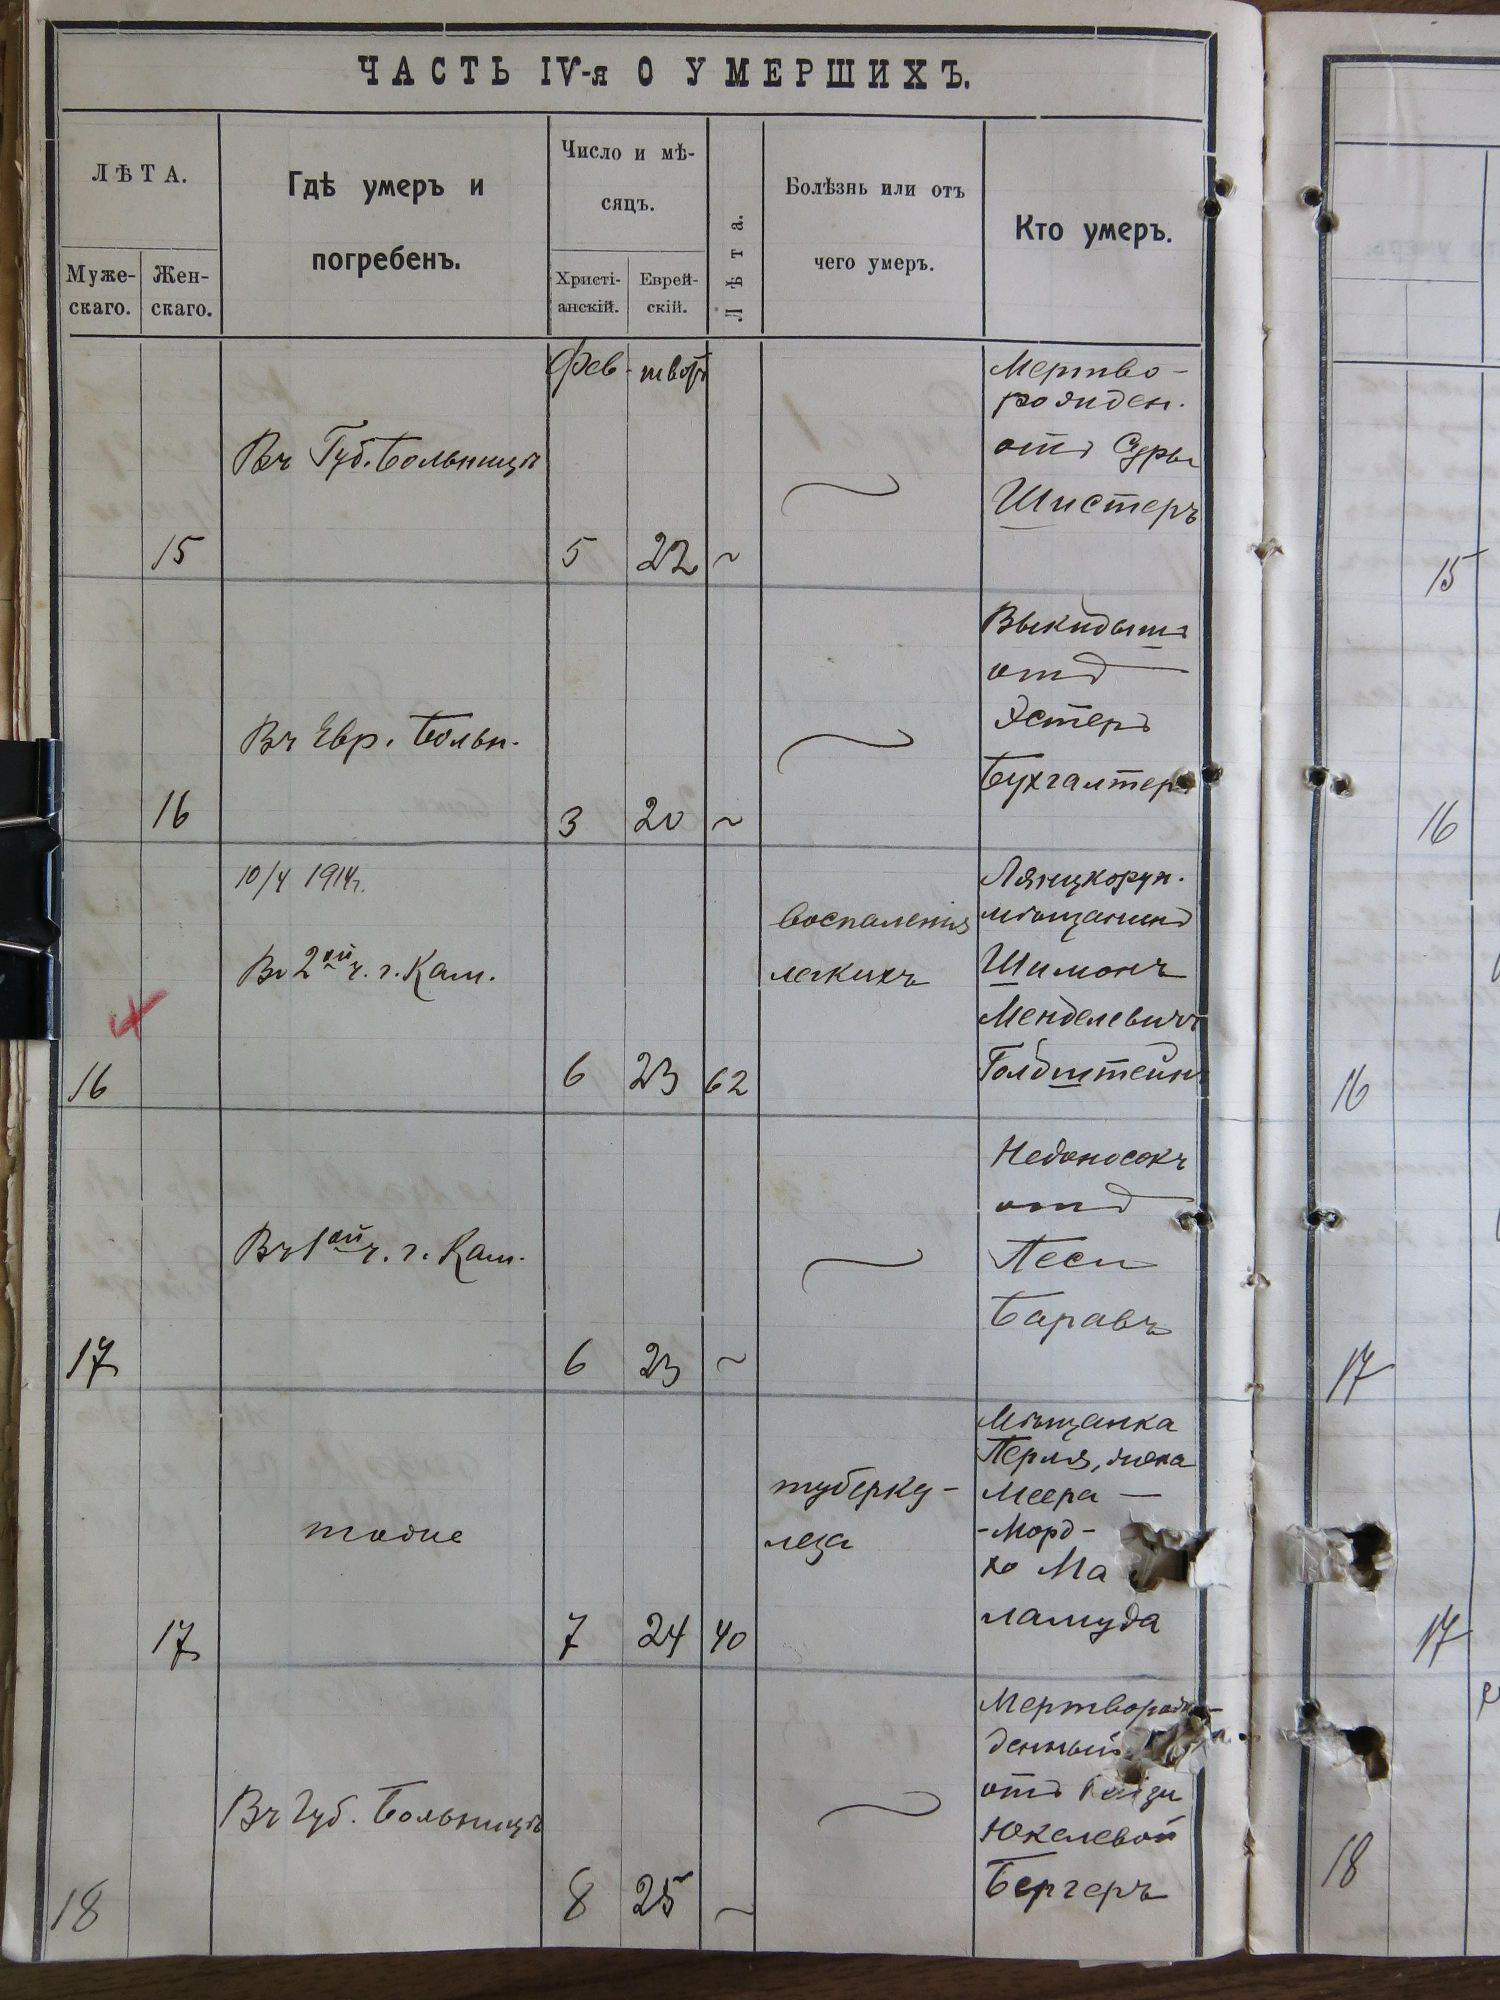 ЧАСТЬ IV-я О УМЕРШИХЪ.
ЛѢТА.
Муже-
скаго.
Жен-
скаго.
Гдѣ умеръ и
погребенъ.
Число и мѣ-
сяцъ.
Христі-
анскій.
Еврей-
скій.
Лѣта.
Болѣзнь или отъ
чего умеръ.
Кто умеръ.
Фев-
Мертво-
рожден.
отъ Суры
Шистеръ
Въ Губ. Больницѣ
15
5
22
~
Выкидышъ
отъ
Эстеръ
Бухгалтеръ
Въ Евр. Больн.
16
3
20
~
10/4 1914г.
Въ 2ой ч. г. Кам.
воспаленія
легкихъ
Лянцкорун.
мѣщанинъ
Шимонъ
Менделевичъ
Голдштейнъ
16
6
23
62
Въ 1ой ч. г. Кам.
Недоносокъ
отъ
Песи
Баравъ
17
6
23
~
тоже
туберку-
леза
Мѣщанка
Перля, жена
Меера -
-Морд-
ко Ма
ламуда
17
7
24
40
Въ Губ. Больницѣ
Мертворож-
денный
отъ Рейзи
Юкелевой
Бергеръ
18
8
25
~
15
16
16
17
17
18